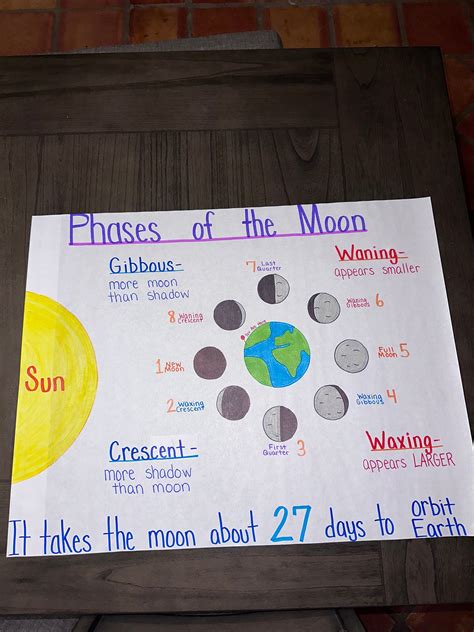 Phases of the Moon
Gibbous-
more moon
than shadow
Waning-
appears smaller
Sun
1 New
Moon
2 Waxing
Crescent
First
Quarter 3
Waxing
Gibbous 4
Full
Moon 5
Waning
Gibbous 6
7 Last
Quarter
8 Waning
Crescent
Crescent-
more shadow
than moon
Waxing-
appears LARGER
It takes the moon about 27 days to orbit
Earth